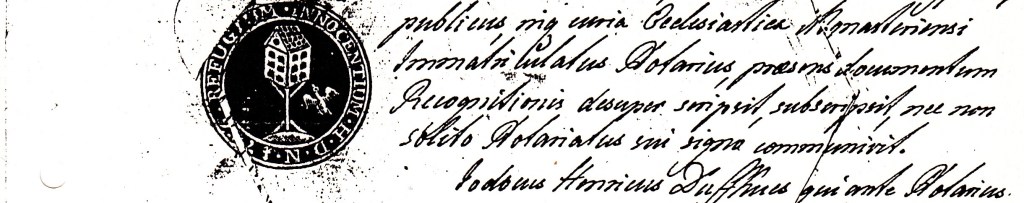 REFUGIUM · INNOCENTIUM · H · D · N ·
publicus, inq curia Ecclesiastica Monasteriensi
Immatriculatus Notarius, præsens documentum
Recognitionis desuper scripsit, subscripsit, nec non
solito Notariatus sui signo communivit.
Jodocus Henricus Duffhues qui ante Notarius.